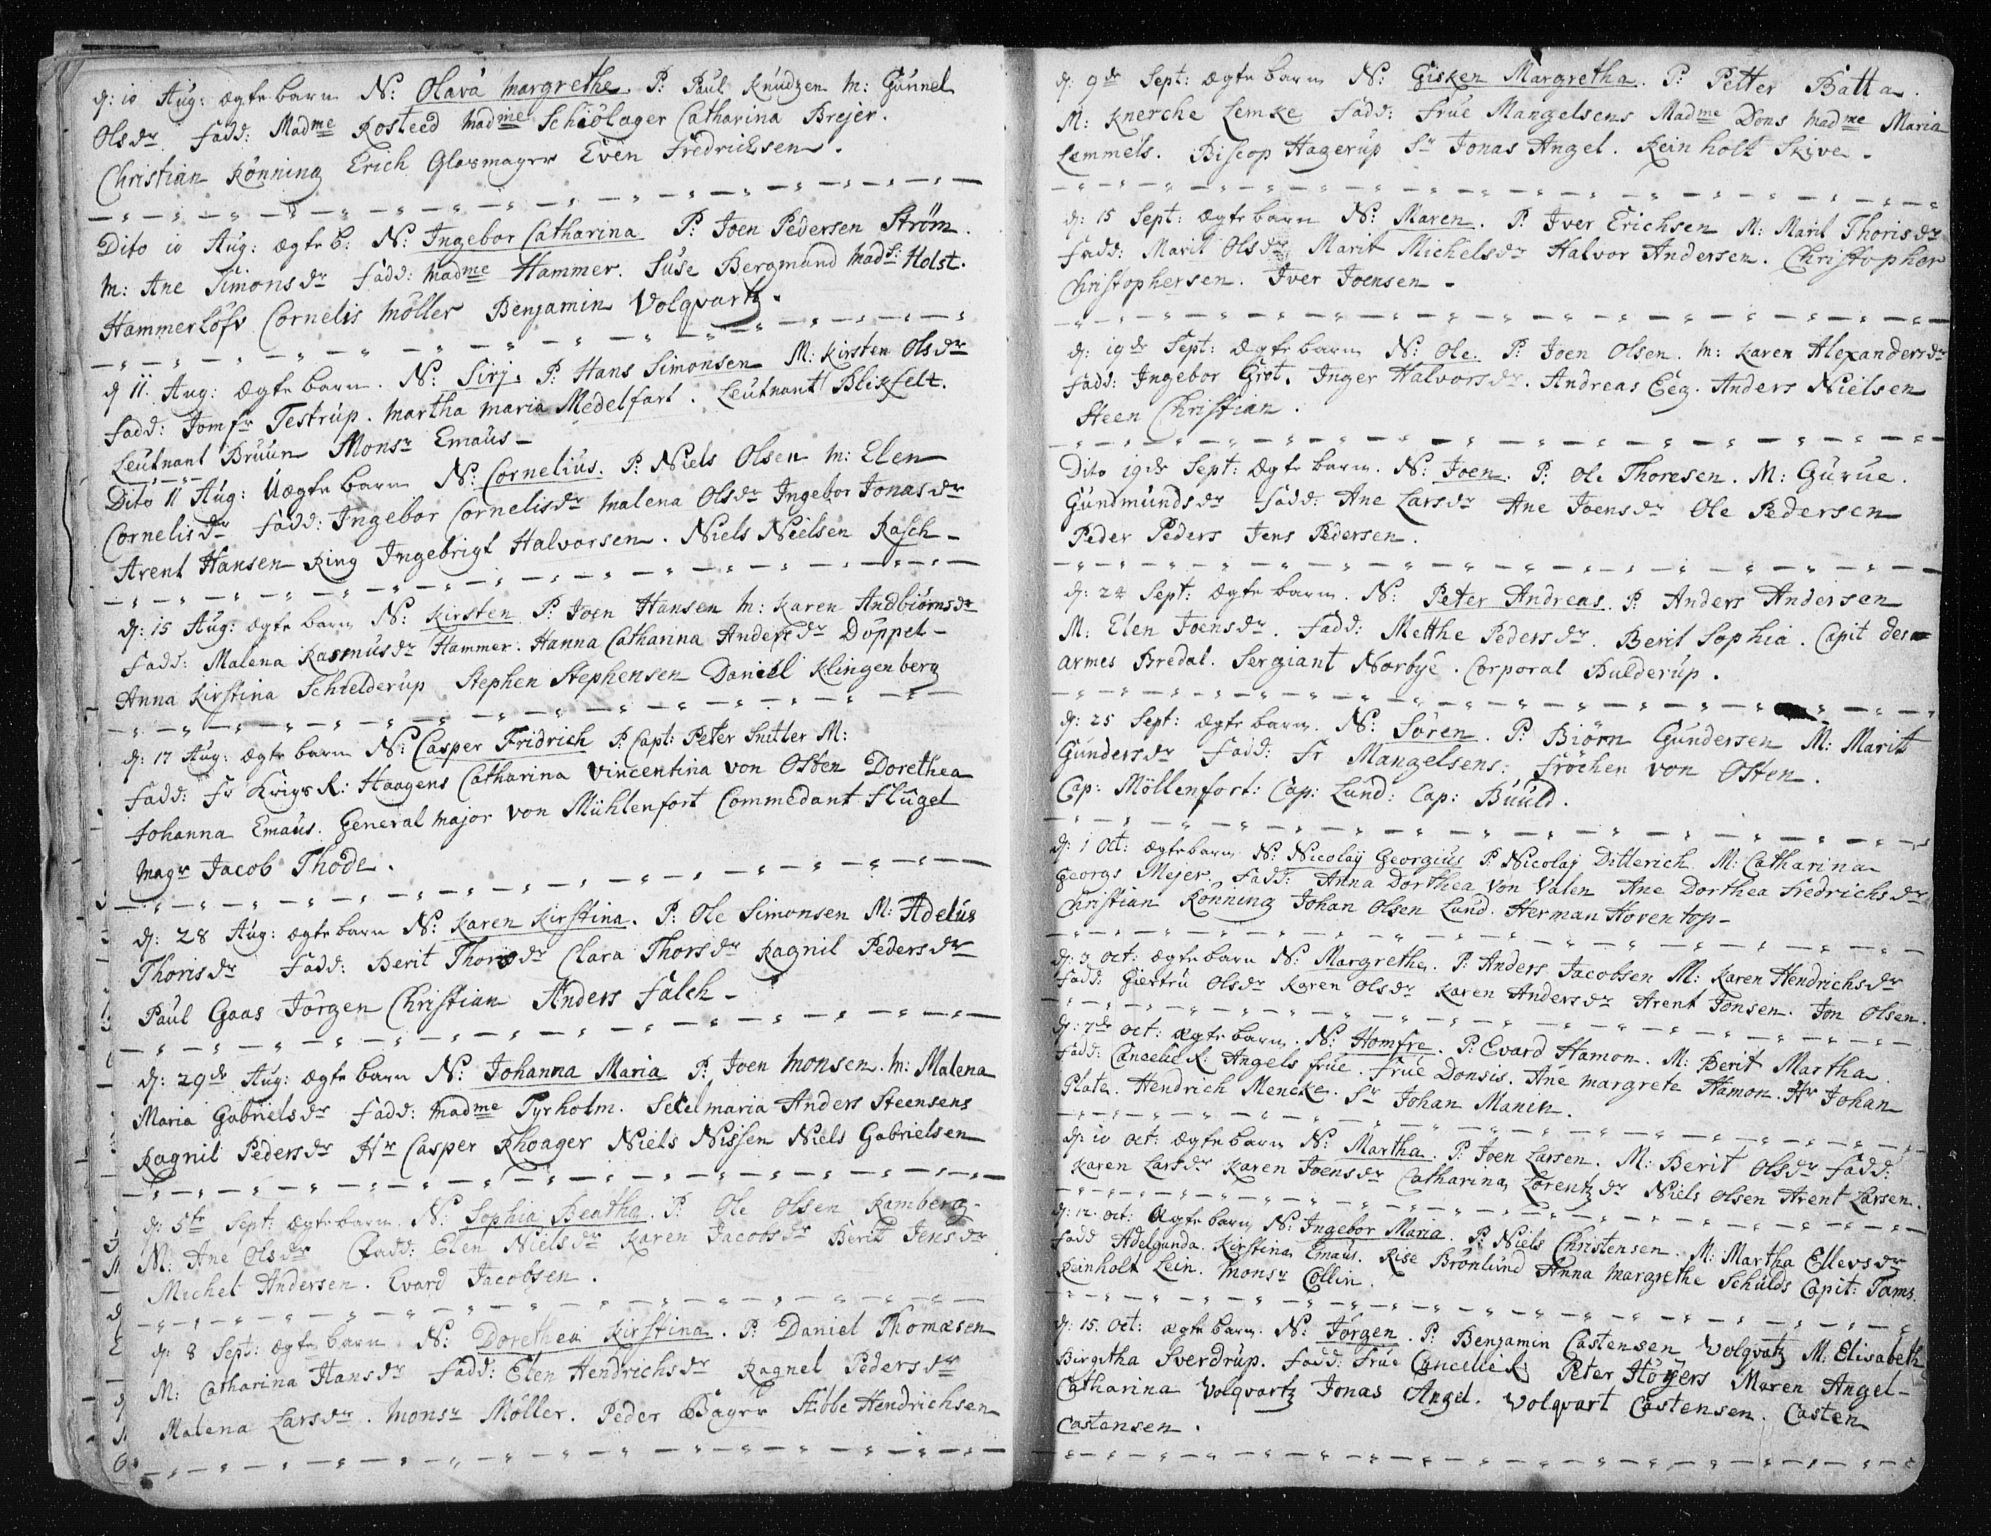 d: 10 Aug: ægte barn N: Olava Margrethe. P: Paul Knudzen M: Gunnel
Olsdr. Fadd: Madme Rosteed Madme Schiölager Catharina Brejer.
Christian Rönning Erich Glasmager Even Fredrichsen.
Dito 10 Aug: ægte b: N: Ingebor Catharina P: Joen Pedersen Ström.
M: Ane Simonsdr Fadd: Madme Hammer. Suse Bergmand Mads: Holst.
Hammerlöfv Cornelis Möller Benjamin Volqvartz.
d 11. Aug: ægte barn. N: Sirj. P: Hans Simonsen M: Kirsten Olsdr
Fadd: Jomfr Testrup. Martha Maria Medelfart. Leutnant Blixfelt.
Leutnant Bruun Monsr Emaus
Dito 11 Aug: Uægte barn N: Cornelius. P: Niels Olsen M: Elen
Cornelisdr Fadd: Ingebor Cornelisdr Malena Olsdr Ingebor Jonasdr
Arent Hansen Ring Ingebrigt Halvorsen. Niels Nielsen Rasch
d: 15 Aug: ægte barn N: Kirsten P: Joen Hansen M: Karen Andbiörnsdr
Fadd: Malena Rasmusdr Hammer. Hanna Catharina Andersdr Doppel
Anna Kirstina Schielderup Stephen Stephensen Daniel Klingenberg
d: 17 Aug: ægte barn N: Casper Fridrich P: Capt: Peter Snitler M:
Fadd: Fr Krigs R: Haagens Catharina Vincentina von Osten Dorethea
Johanna Emaus. General Major von Mühlenfort Commedant Flugel
Magr Jacob Thode.
d: 28 Aug: ægte barn N: Karen Kirstina. P: Ole Simonsen M: Adelus
Thorisdr Fadd: Berit Thorisdr Clara Thorsdr Ragnil Pedersdr
Paul Gaas Jörgen Christian Anders Falch
d: 29de Aug: ægte barn N: Johanna Maria P: Joen Monsen. M: Malena
Maria Gabrielsdr Fadd: Madme Tyrholm. Setelmaria Anders Steensens
Ragnil Pedersdr Hr Casper Rhoager Niels Nissen Niels Gabrielsen
d: 5te Sept: ægte barn. N: Sophia Beatha. P: Ole Olsen Ramberg
M: Ane Olsdr Fadd: Elen Nielsdr Karen Jacobsdr Berit Jensdr
Michel Andersen. Evard Jacobsen.
d: 8 Sept: ægte barn N: Dorethea Kirstina. P: Daniel Thomæsen
M: Catharina Hansdr Fadd: Elen Hendrichsdr Ragnel Pedersdr
Malena Larsdr. Monsr Möller. Peder Bager Hibbe Hendrichsen
d: 9de Sept: ægte barn N: Gisken Margretha. P: Petter Batta.
M: Knerche Lemke Fadd: Frue Mangelsens Madme Dons Madme Maria
Lemmels. Biscop Hagerup Sr Jonas Angel. Reinholt Skive
d: 15 Sept: ægte barn N: Maren. P: Iver Erichsen M: Marit Thorisdr
Fadd: Marit Olsdr Marit Michelsdr Halvor Andersen. Christopher
Christophersen. Iver Joensen
d: 19de Sept: ægte barn N: Ole. P: Joen Olsen. M: Karen Alexandersdr
Fadd: Ingebor Grot. Inger Halvorsdr. Andreas Eeg. Anders Nielsen
Steen Christian.
Dito 19de Sept: ægte barn. N: Joen. P: Ole Thoresen. M: Gurue.
Gundmundsdr Fadd: Ane Larsdr Ane Joensdr Ole Pedersen
Peder Peders Jens Pedersen.
d: 24 Sept: ægte barn. N: Peter Andreas. P: Anders Andersen
M: Elen Joensdr. Fadd: Metthe Pedersdr. Berit Sophia. Capit des
armes Bredal. Sergiant Norbye. Corporal Bulderup.
d: 25 Sept: ægte barn. N: Sören. P: Biörn Gundersen M: Marit
Gundersdr Fadd: Fr Mangelsens: Fröchen von Osten.
Cap: Möllenfort: Cap: Lund: Cap: Buuld.
d: 1 Oct: ægte barn N: Nicolaÿ Georgius P: Nicolaÿ Ditterich M: Catharina
Georgs Mejer. Fadd: Anna Dorthea von Valen Ane Dorthea Fredrichsdr
Christian Rönning Johan Olsen Lund. Herman Hoventop
d: 3 Oct: ægte barn N: Margrethe. P: Anders Jacobsen M: Karen Hendrichsdr
Fadd: Giertru Olsdr Karen Olsdr Karen Andersdr Arent Jonsen. Jon Olsen.
d: 7de Oct: ægte barn. N: Homfre. P: Evard Hamon. M: Berit Martha
Fadd: Cancelie R: Angels frue. Frue Donsis. Ane Margrete Hamon. Hr Johan
Plate. Hendrich Mencke. Sr Johan Manin.
d: 10 Oct: ægte barn N: Martha. P: Joen Larsen. M: Berit Olsdr Fadd:
Karen Larsdr Karen Joensdr Catharina Lorentzdr Niels Olsen Arent Larsen.
d: 12. Oct: ægte barn N: Ingebor Maria. P: Niels Christensen. M: Martha Ellevsdr
Fadd Adelgunda. Kirstina Emaus. Rise Brönlund Anna Margrethe Schulds Capit: Tams.
Reinholt Lein. Monsr Collin.
d: 15. Oct: ægte barn. N: Jörgen. P: Benjamin Castensen Volqvatz M: Elisabeth
Birgitha Sverdrup. Fadd: Frue Cancelie R: Peter Höyers Maren Angel
Catharina Volqvartz Jonas Angel. Volqvart Castensen. Casten
Castensen.